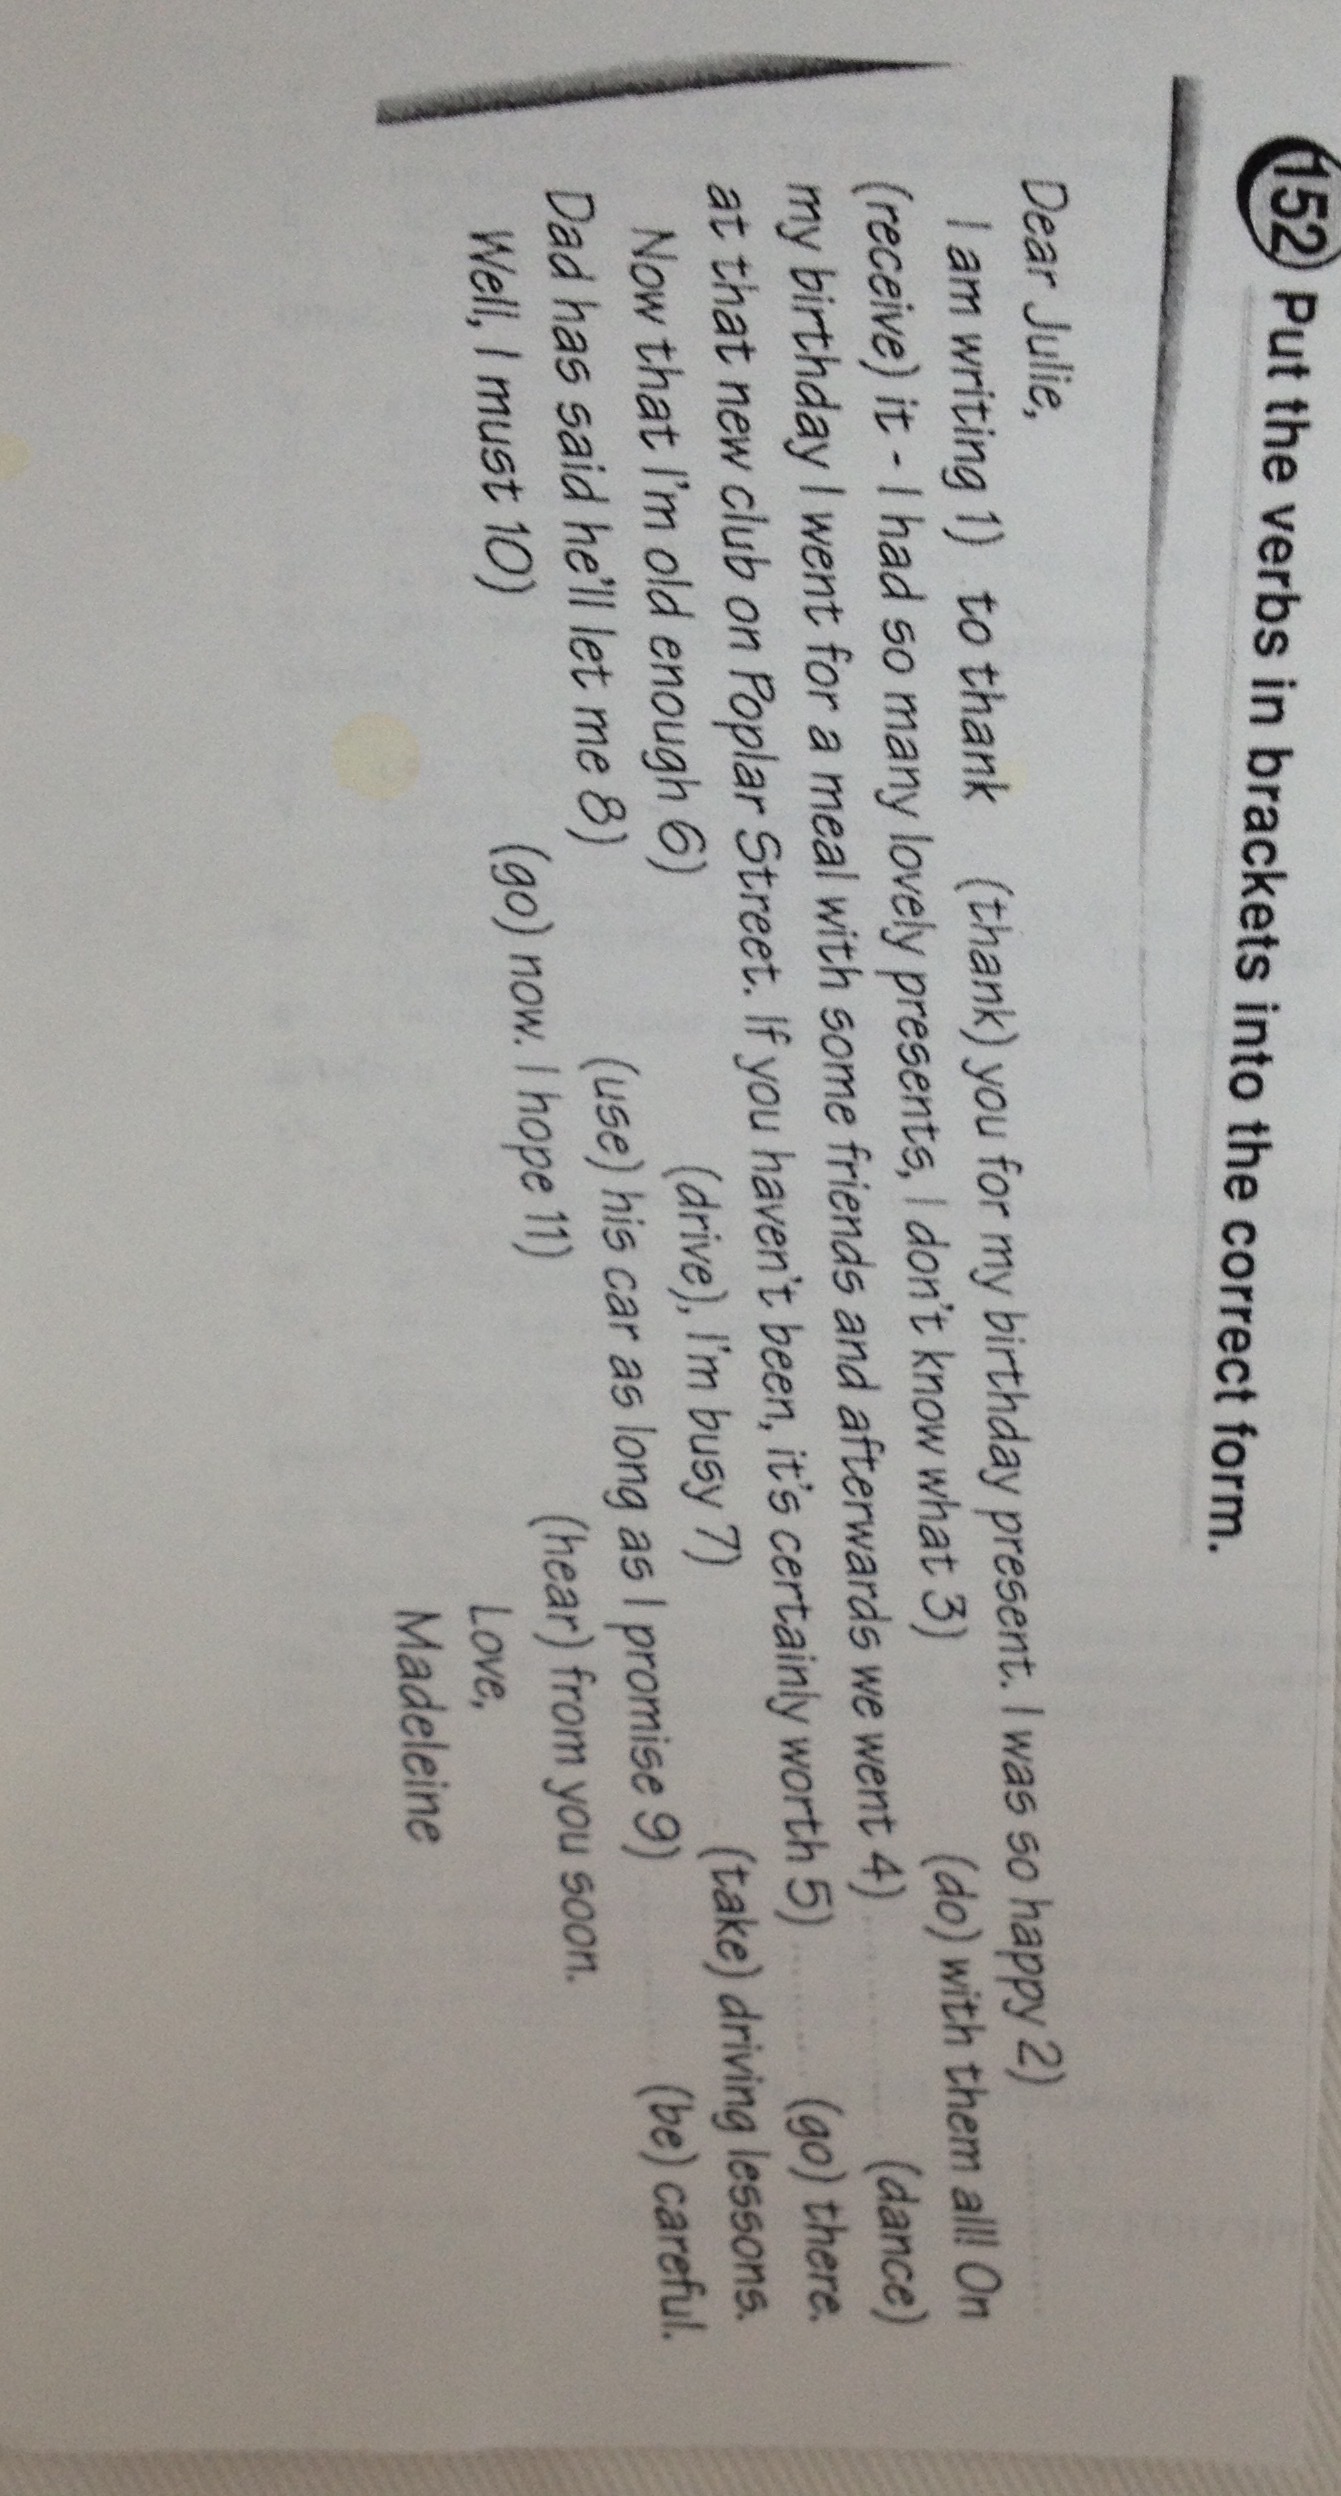 152 Put the verbs in brackets into the correct form.
Dear Julie,
I am writing 1) to thank (thank) you for my birthday present. I was so happy 2)
(receive) it - I had so many lovely presents, I don't know what 3) (do) with them all! On
my birthday I went for a meal with some friends and afterwards we went 4) ........ (dance)
at that new club on Poplar Street. If you haven't been, it's certainly worth 5) ........ (go) there.
Now that I'm old enough 6) (drive), I'm busy 7) (take) driving lessons.
Dad has said he'll let me 8) (use) his car as long as I promise 9) ........ (be) careful.
Well, I must 10) (go) now. I hope 11) (hear) from you soon.
Love,
Madeleine